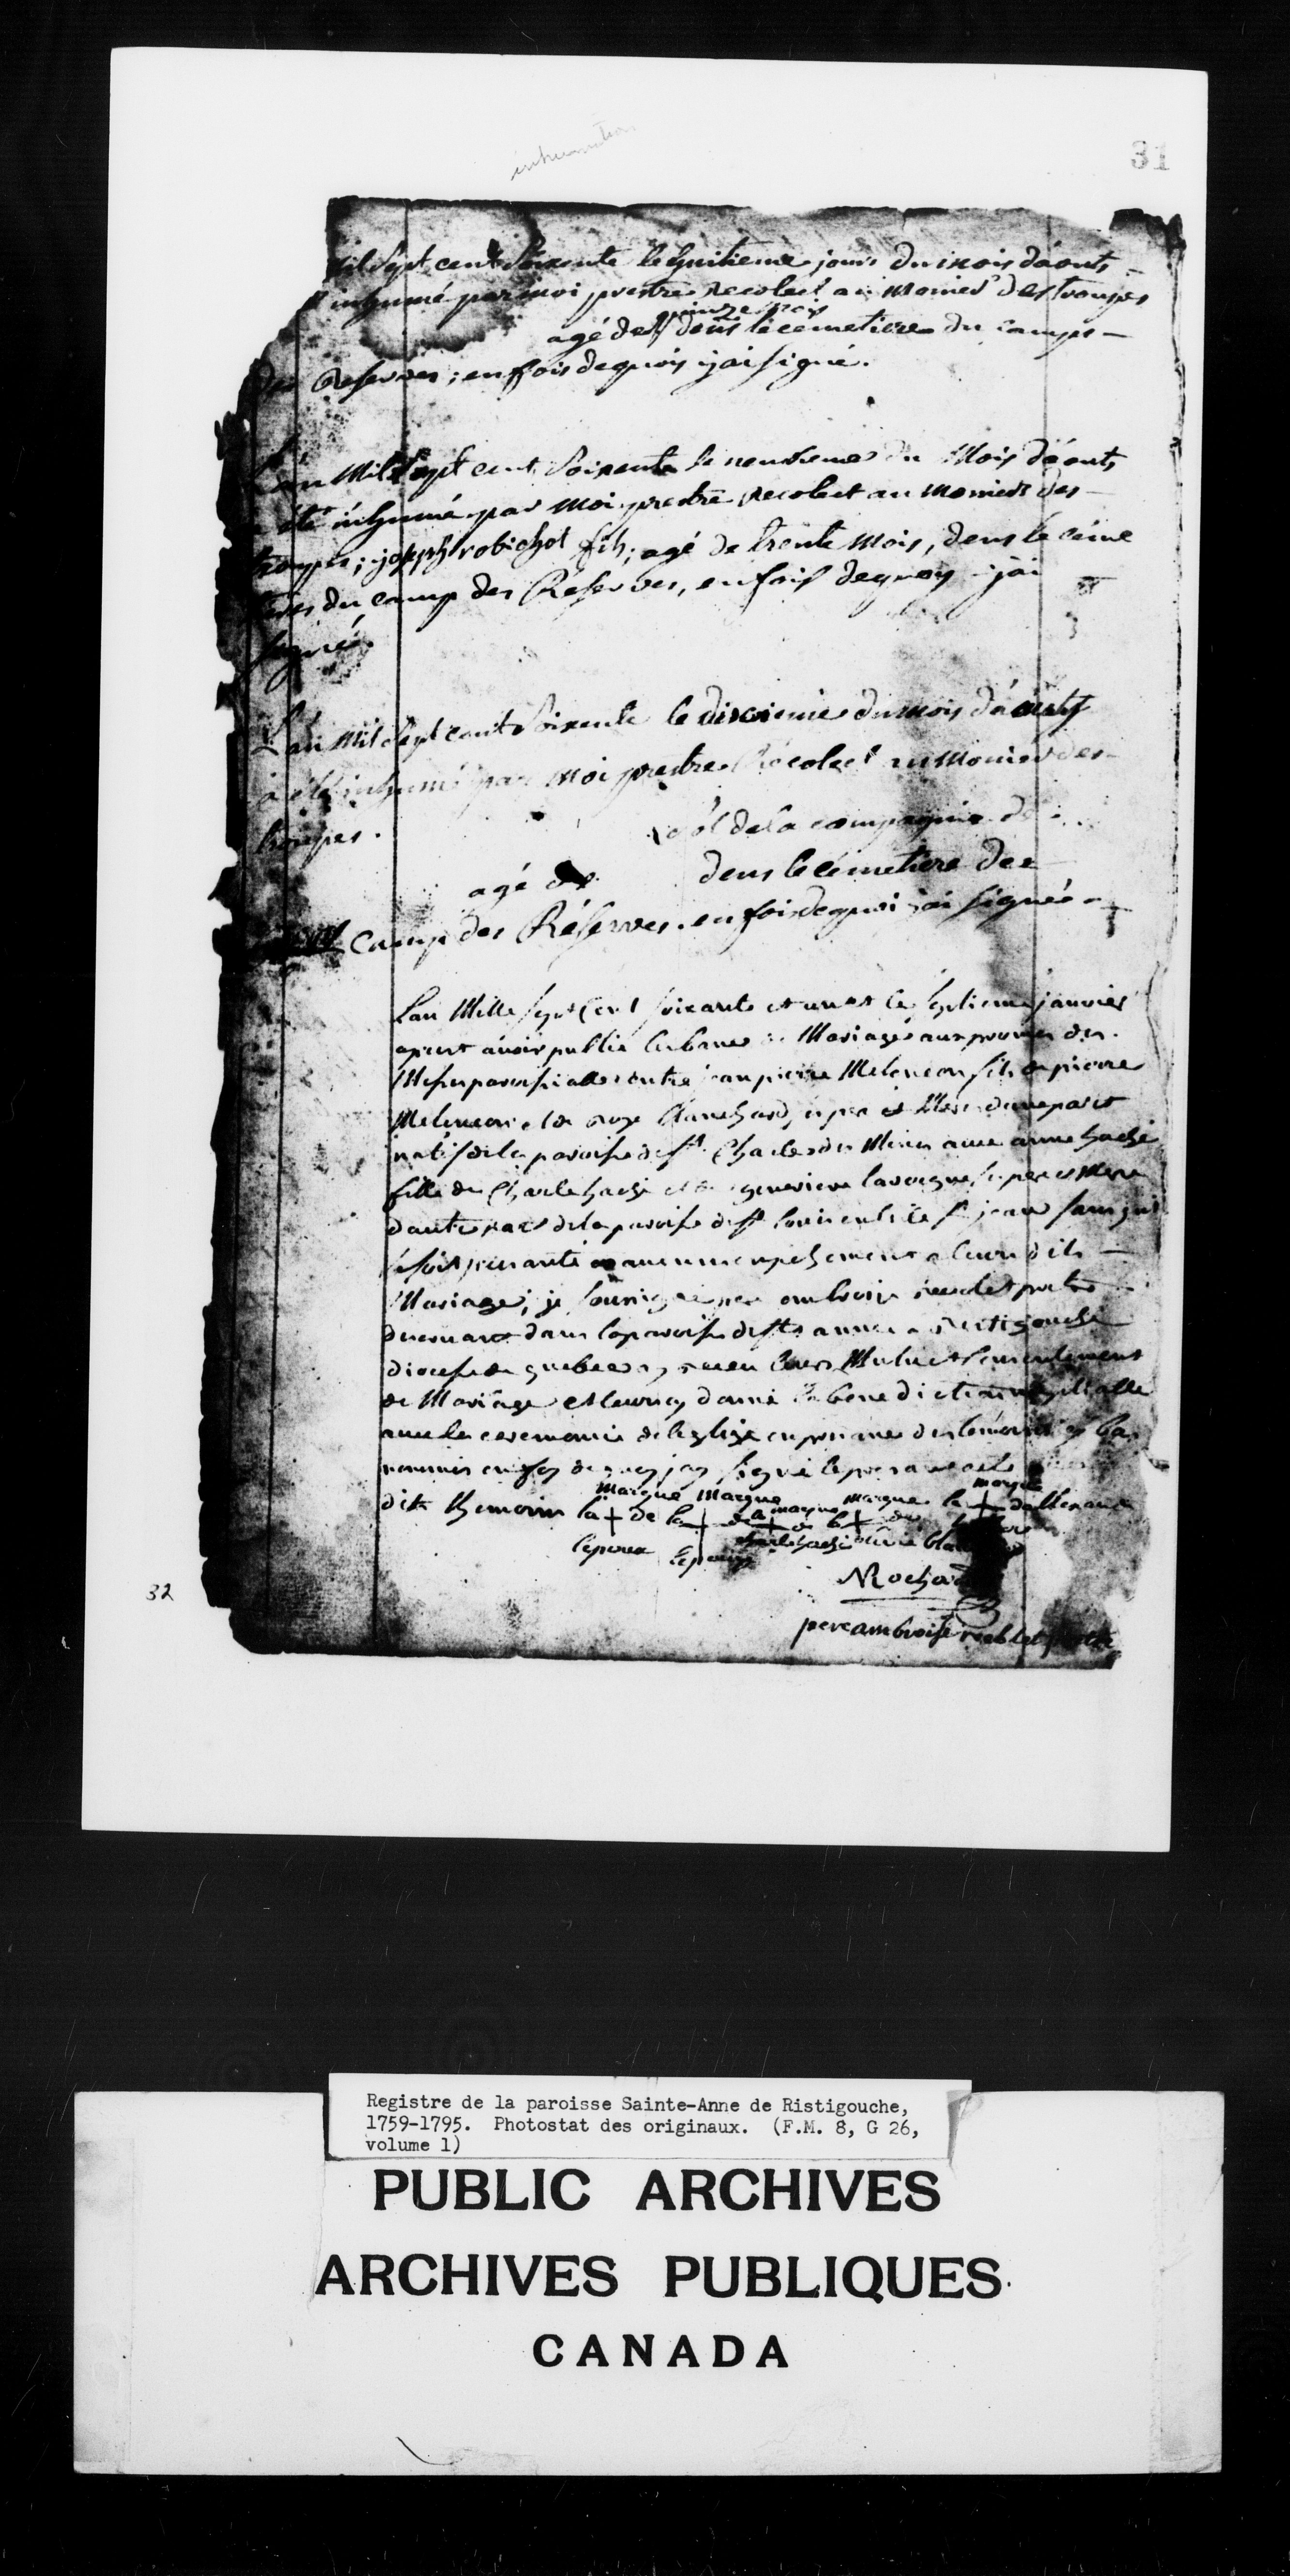 inhumation
31
mil sept cent Soixente le huitieme jours du mois d'aout,
inhumé par moi prestre Recolect au monier des troupes
quinze mois
agé de dens le cemetiere du camps
des Reserves; en fois de quois j'ai signé.
L'an Mil Sept cent Soixente le neuvieme du Mois d'aout,
été inhumé par Moi prestre Recolect au Moniers des
troupes; joseph robichot fils; agé de trente Mois, dens le cime
tiere du camp des Réserves, en fois de quoy j'ai
signé.
L'an Mil Sept cent Soixente le dixieme du mois d'aout
à été inhumé par Moi prestre Récolect au Monier des
troupes. de la compagnie de
agé de dens le cémetiere des
Camp des Réserves. en fois de quoi j'ai signée
Lan Mille sept Cent soixante et un et le septieme janvier
apert avoir publie les banes de Mariage aux prones des
Messes paroissialles entre jean pierre Melencon fils de pierre
Melencon et de roze blanchard, ses per et Mere dune part
natif de la paroisse de st Charles des Mines avec anne haché
fille de Charle haché et de genevieve lavergne se per et Mere
dautre part de la paroisse de st louis en lile st jean sans quil
se soit presanté aucunne enpechement a leurs dits
Mariage; je sousigné per ambroise recolet pretre
desservant dans la paroisse de ste anne a Restigouche
diocese de quebec ay receu leurs Mutuel consentement
de Mariage et leur ay donné la benediction nuptialle
avec les ceremonie de leglise en presance des temoins cy bas
nommés en foy de quoy jay signé le present acte
dits themoins la + de la + de la + de la + de le + dallexandre
marque marque marque marque marque
lepoux lepouse charle haché pierre blanchard
NRochard
pere ambroise recolet pretre
32
Registre de la paroisse Sainte-Anne de Ristigouche,
1759-1795. Photostat des originaux. (F.M. 8, G 26,
volume 1)
PUBLIC ARCHIVES
ARCHIVES PUBLIQUES
CANADA